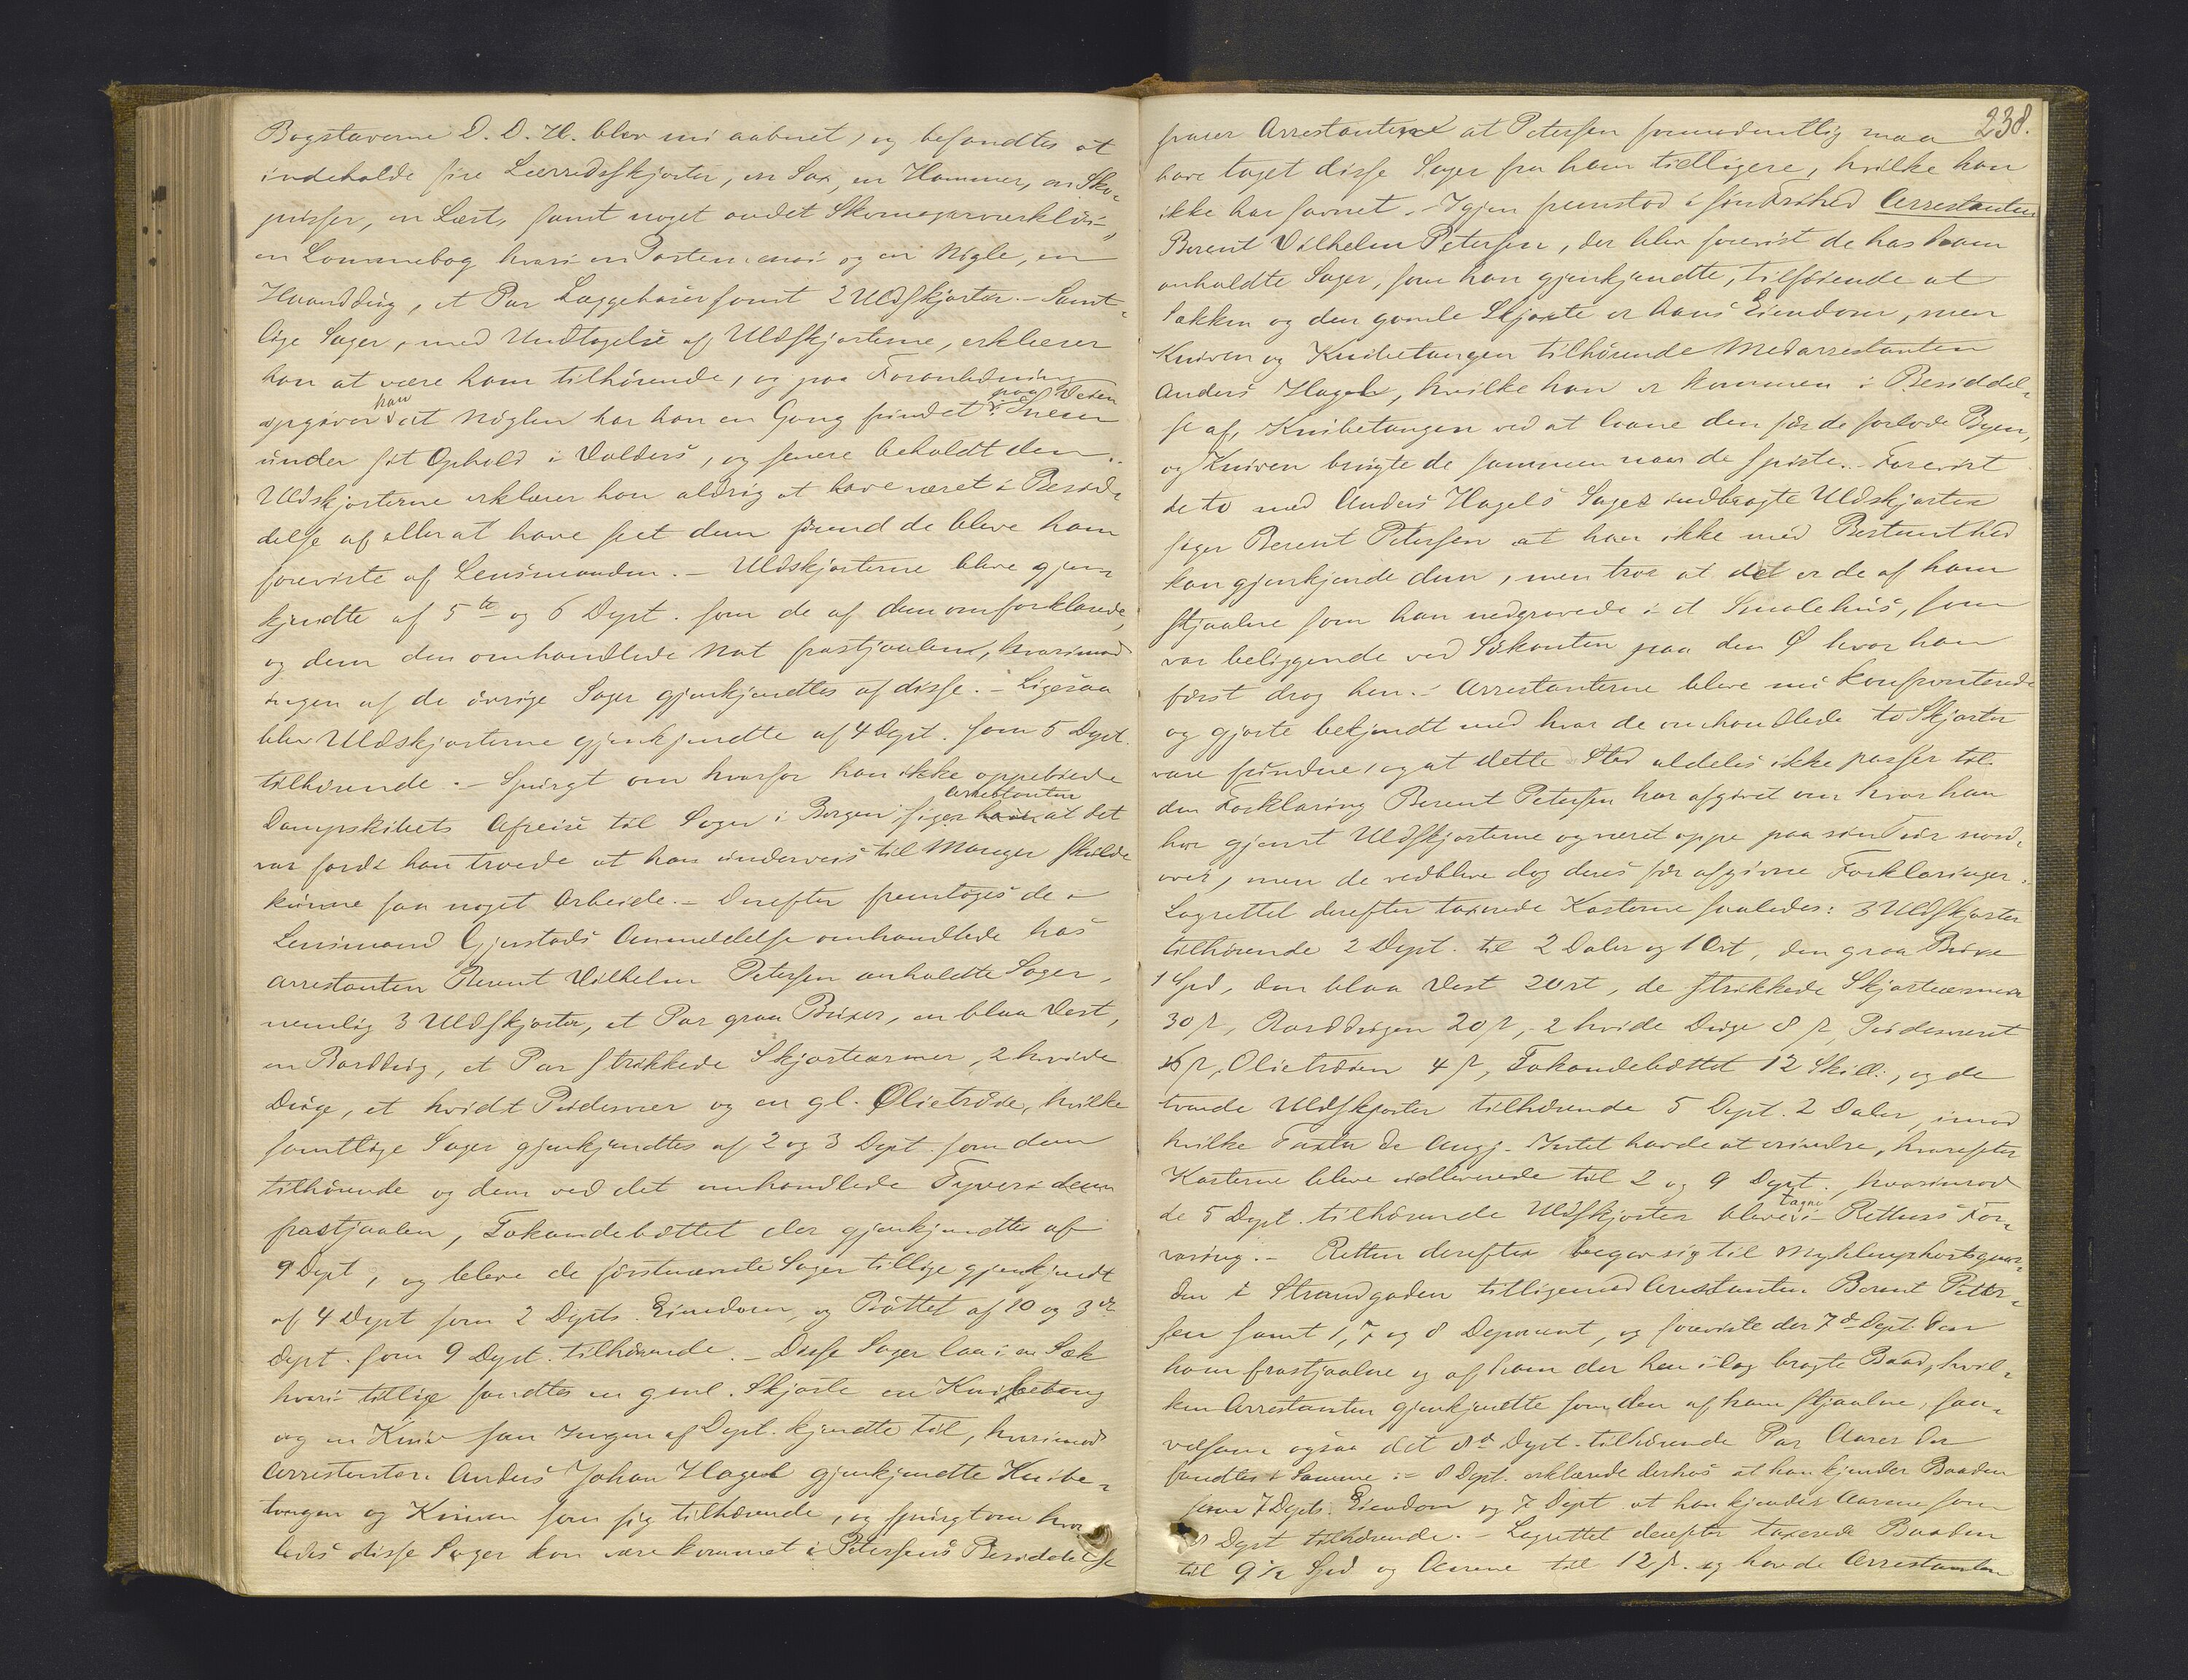 Bogstaverne D. D. H. blev nu aabnet, og befandtes at
indeholde fire Lærredsskjorter, en Sax, en Hammer, en Sko-
pusser, en Læst, samt noget andet Skomagerværktøi,
en Lommebog hvori en Portemonai og en Nøgle, en
Haanddug, et Par Læggehoser samt 2 Uldskjorter. – Samt-
lige Sager, med Undtagelse af Uldskjorterne, erklærer
han at være ham tilhørende, og paa Foranledning
opgiver han at Nøglen har han en Gang fundet paa Veien i Sneen
under sit Ophold i Valders, og senere beholdt den.
Uldskjorterne erklærer han aldrig at have været i Besid-
delse af eller at have seet dem førend de bleve ham
foreviste af Lensmanden. – Uldskjorterne bleve gjen-
kjendte af 5te og 6 Dept. som de af dem omforklarede,
og dem den omhandlede Nat frastjaalne, hvorimod
ingen af de øvrige Sager gjenkjendtes af disse. – Ligesaa
blev Uldskjorterne gjenkjendte af 4 Dept. som 5 Dept.
tilhørende. – Spurgt om hvorfor han ikke oppebiede
Dampskibets Afreise til Sogn i Bergen siger Arrestanten at det
var fordi han troede at han underveis til Manger skulde
kunne faa noget Arbeide. – Derefter fremtoges de i
Lensmand Gjerstads Anmeldelse omhandlede hos
Arrestanten Berent Vilhelm Petersen anholdte Sager,
nemlig 3 Uldskjorter, et Par graa Buxer, en blaa Vest,
en Borddug, et Par strikkede Skjorteærmer, 2 hvide
Duge, et hvidt Pudevær og en gl. Olietrøie, hvilke
samtlige Sager gjenkjendtes af 2 og 3 Dept. som dem
tilhørende og dem ved det omhandlede Tyveri dem
frastjaalen, Tokandebøttet der gjenkjendtes af
9 Dept, og bleve de førstnævnte Sager tillige gjenkjendt
af 4 Dept som 2 Depts. Eiendom, og Bøttet af 10 og 3die
Dept. som 9 Dept. tilhørende. – Disse Sager laa i en Sæk
hvori tillige fandtes en gml. Skjorte en Knibetang
og en Kniv som Ingen af Dept. kjendte til, hvorimod
Arrestanten Anders Johan Hagel gjenkjendte Knibe-
tangen og Kniven som sig tilhørende, og spurgt om hvor
ledes disse Sager kan være kommet i Petersens Besiddelse
238.
svarer Arrestanten at Petersen formodentlig maa
have taget disse Sager fra ham tidligere, hvilke han
ikke har savnet. – Igjen fremstod i sin Frihed Arrestanten
Berent Vilhelm Petersen, der blev forevist de hos ham
anholdte Sager, som han gjenkjendte, tilføiende at
Sækken og den gamle Skjorte er hans Eiendom, men
Kniven og Knibetangen tilhørende Medarrestanten
Anders Hagel, hvilke han er kommen i Besiddel-
se af, Knibetangen ved at laane den før de forlode Byen,
og Kniven brugte de sammen naar de spiste. – Forevist
de to med Anders Hagels Sager indbragte Uldskjorter
siger Berent Petersen at han ikke med Bestemthed
kan gjenkjende dem, men tror at det er de af ham
stjaalne som han nedgravede i et Smalehus, som
var beliggende ved Søkanten paa den Ø hvor han
først drog hen. – Arrestanterne bleve nu konfronterede
og gjorte bekjendt med hvor de omhandlede to Skjorter
vare fundne, og at dette Sted aldeles ikke passer til
den Forklaring Berent Petersen har afgivet om hvor han
har gjemt Uldskjorterne og været oppe paa sin Tur nord-
over, men de vedbleve dog deres før afgivne Forklaringer.
Lagrettet derefter taxerede Kosterne saaledes: 3 Uldskjorter
tilhørende 2 Dept. til 2 Daler og 1 Ort, den graa Buxe
1 Spd, den blaa Vest 2 Ort, de strikkede Skjorteærmer
30 ß, Borddugen 20 ß, 2 hvide Duge 8 ß, Pudeværet
16 ß, Olietrøien 4 ß, Tokandebøttet 12 Skill:, og de
tvende Uldskjorter tilhørende 5 Dept. 2 Daler, imod
hvilke Taxter de Angj. Intet havde at erindre, hvorefter
Kosterne bleve udleverede til 2 og 9 Dept., hvorimod
de 5 Dept. tilhørende Uldskjorter bleve tagne i Rettens For-
varing. – Retten derefter begav sig til Myklenphortsgaar-
den i Strandgaden tilligemed Arrestanten Berent Peter-
sen samt 1, 7 og 8 Deponent, og foreviste der 7de Dept. den
ham frastjaalne og af ham der hen i Dag bragte Baad, hvil-
ken Arrestanten gjenkjendte som den af ham stjaalne, saa-
velsom ogsaa det 8de Dept. tilhørende Par Aarer der
fandtes i Samme: – 8 Dept. erklærede derhos at han kjender Baaden
som 7 Depts. Eiendom og 7 Dept at han kjender Aarene som
8 Dept tilhørende. – Lagrettet derefter taxerede Baaden
til 9½ Spd og Aarene til 12 ß. og havde Arrestanten